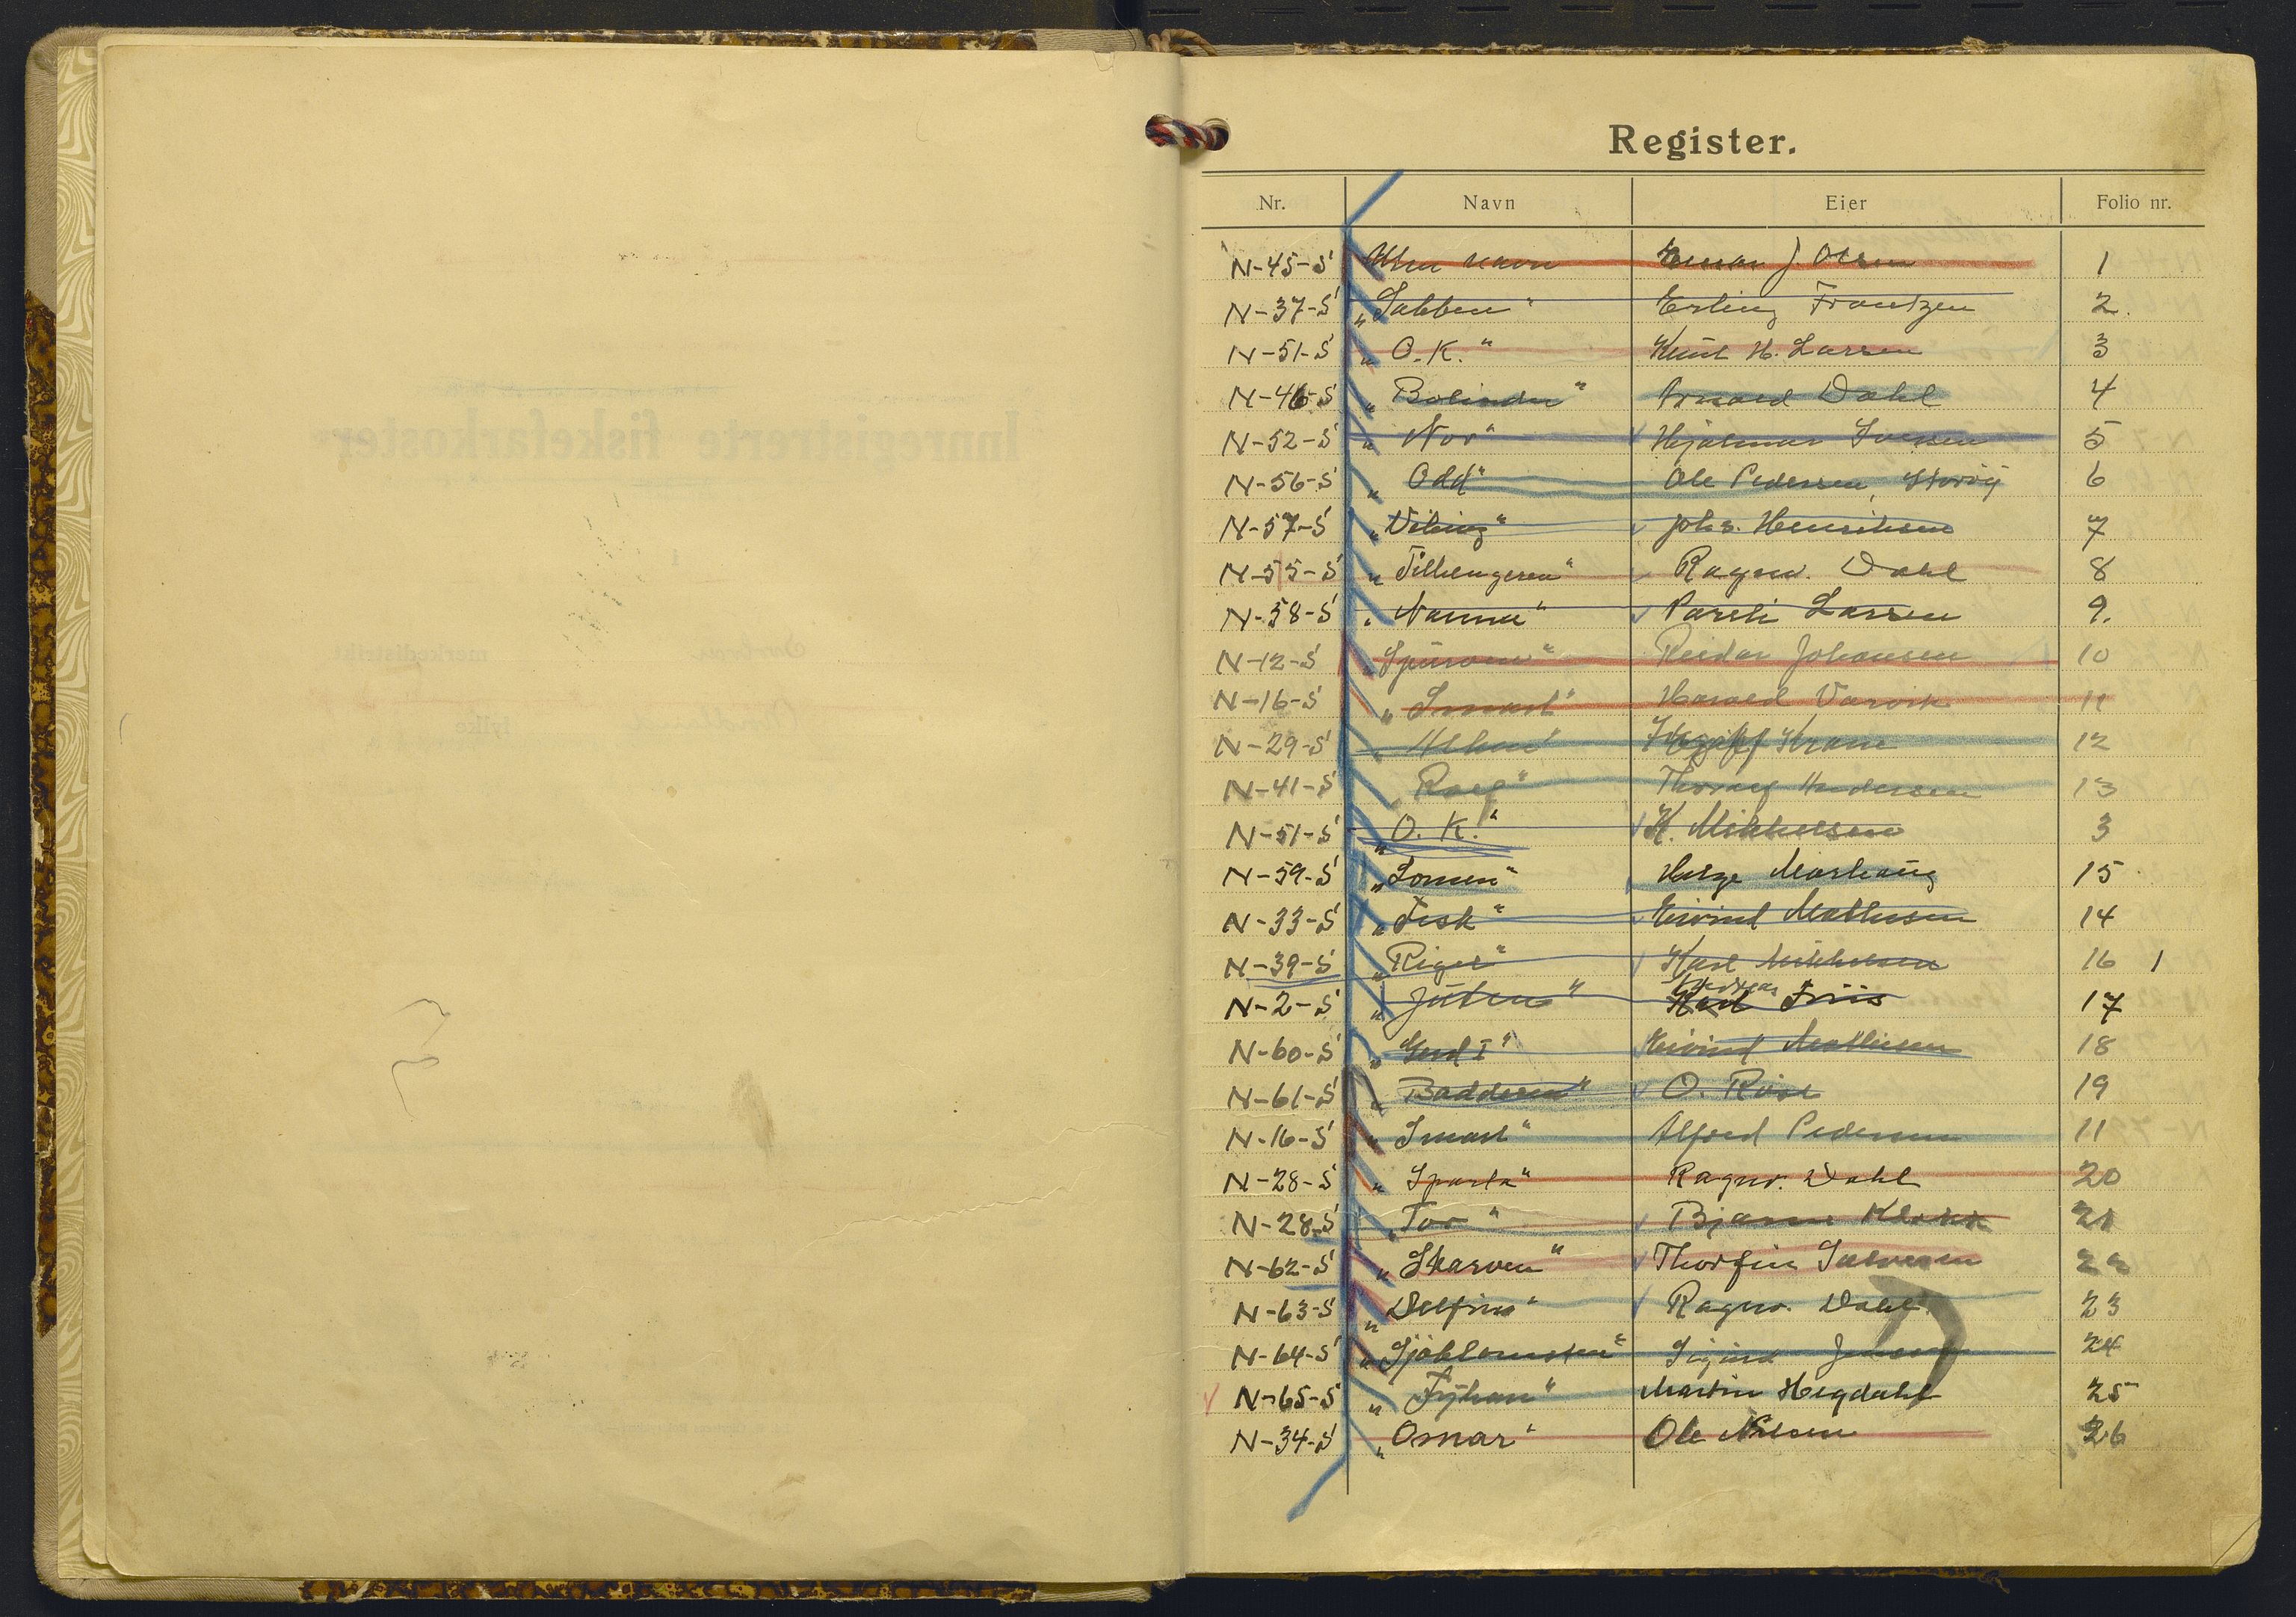 Register.
Nr. Navn Eier Folio nr.
N-45-S Uten navn J. Olsen 1
N-37-S „Sabben" Erling Frantzen 2.
N-51-S „O.K." Knut H. Larsen 3
N-46-S „Bolinder" Arnold Dahl 4
N-52-S „Nor" Hjalmar Iversen 5
N-56-S „Odd" Ole Pedersen, 6
N-57-S „Viking" Johs. Henriksen 7
N-55-S „Tilhengeren" Ragnv. Dahl 8
N-58-S „Nanna" Pareli Larsen 9.
N-12-S „Spurven" Reidar Johansen 10
N-16-S „Smart" Harald Varvik 11
N-29-S Krane 12
N-41-S „Roolf" Thoralf Andersen 13
N-51-S „O. K." K. Mikkelsen 3
N-59-S „Lomen" Helge Morhaug 15
N-33-S „Fisk" Eivind Mathisen 14
N-39-S „Riger" Karl Mikkelsen 16 1
Andreas
N-2-S „Juten" Karl Friis 17
N-60-S „Gerd I" Eivind Mathisen 18
N-61-S „Badderen" O. Risø 19
N-16-S „Smart" Alfred Pedersen 11
N-28-S „Sparta" Ragnv. Dahl 20
N-28-S „Tor" Bjarne 21
N-62-S „Skarven" Thorfin Salvesen 22
N-63-S „Delfin" Ragnv. Dahl 23
N-64-S „Sjøblomsten" Sigurd Jensen 24
N-65-S Martin Hegdahl 25
N-34-S „Omar" Ole Nilsen 26
Innregistrerte fiskefarkoster
i
merkedistrikt
fylke